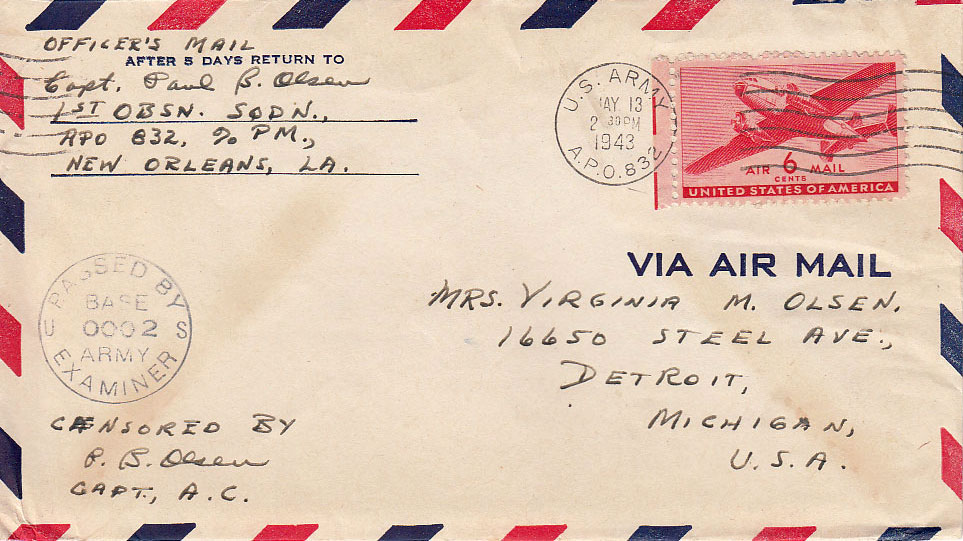 OFFICER'S MAIL
AFTER 5 DAYS RETURN TO
Capt. Paul B. Olsen
1ST OBSN. SQDN.,
APO 832, % P.M.,
NEW ORLEANS, LA.
U.S. ARMY
MAY 13
2 30PM
1943
A.P.O. 832
AIR 6 MAIL
CENTS
UNITED STATES OF AMERICA
VIA AIR MAIL
MRS. VIRGINIA M. OLSEN,
16650 STEEL AVE.,
DETROIT,
MICHIGAN,
U.S.A.
PASSED BY
BASE
U 0002 S
ARMY
EXAMINER
CENSORED BY
P. B. Olsen
CAPT., A.C.